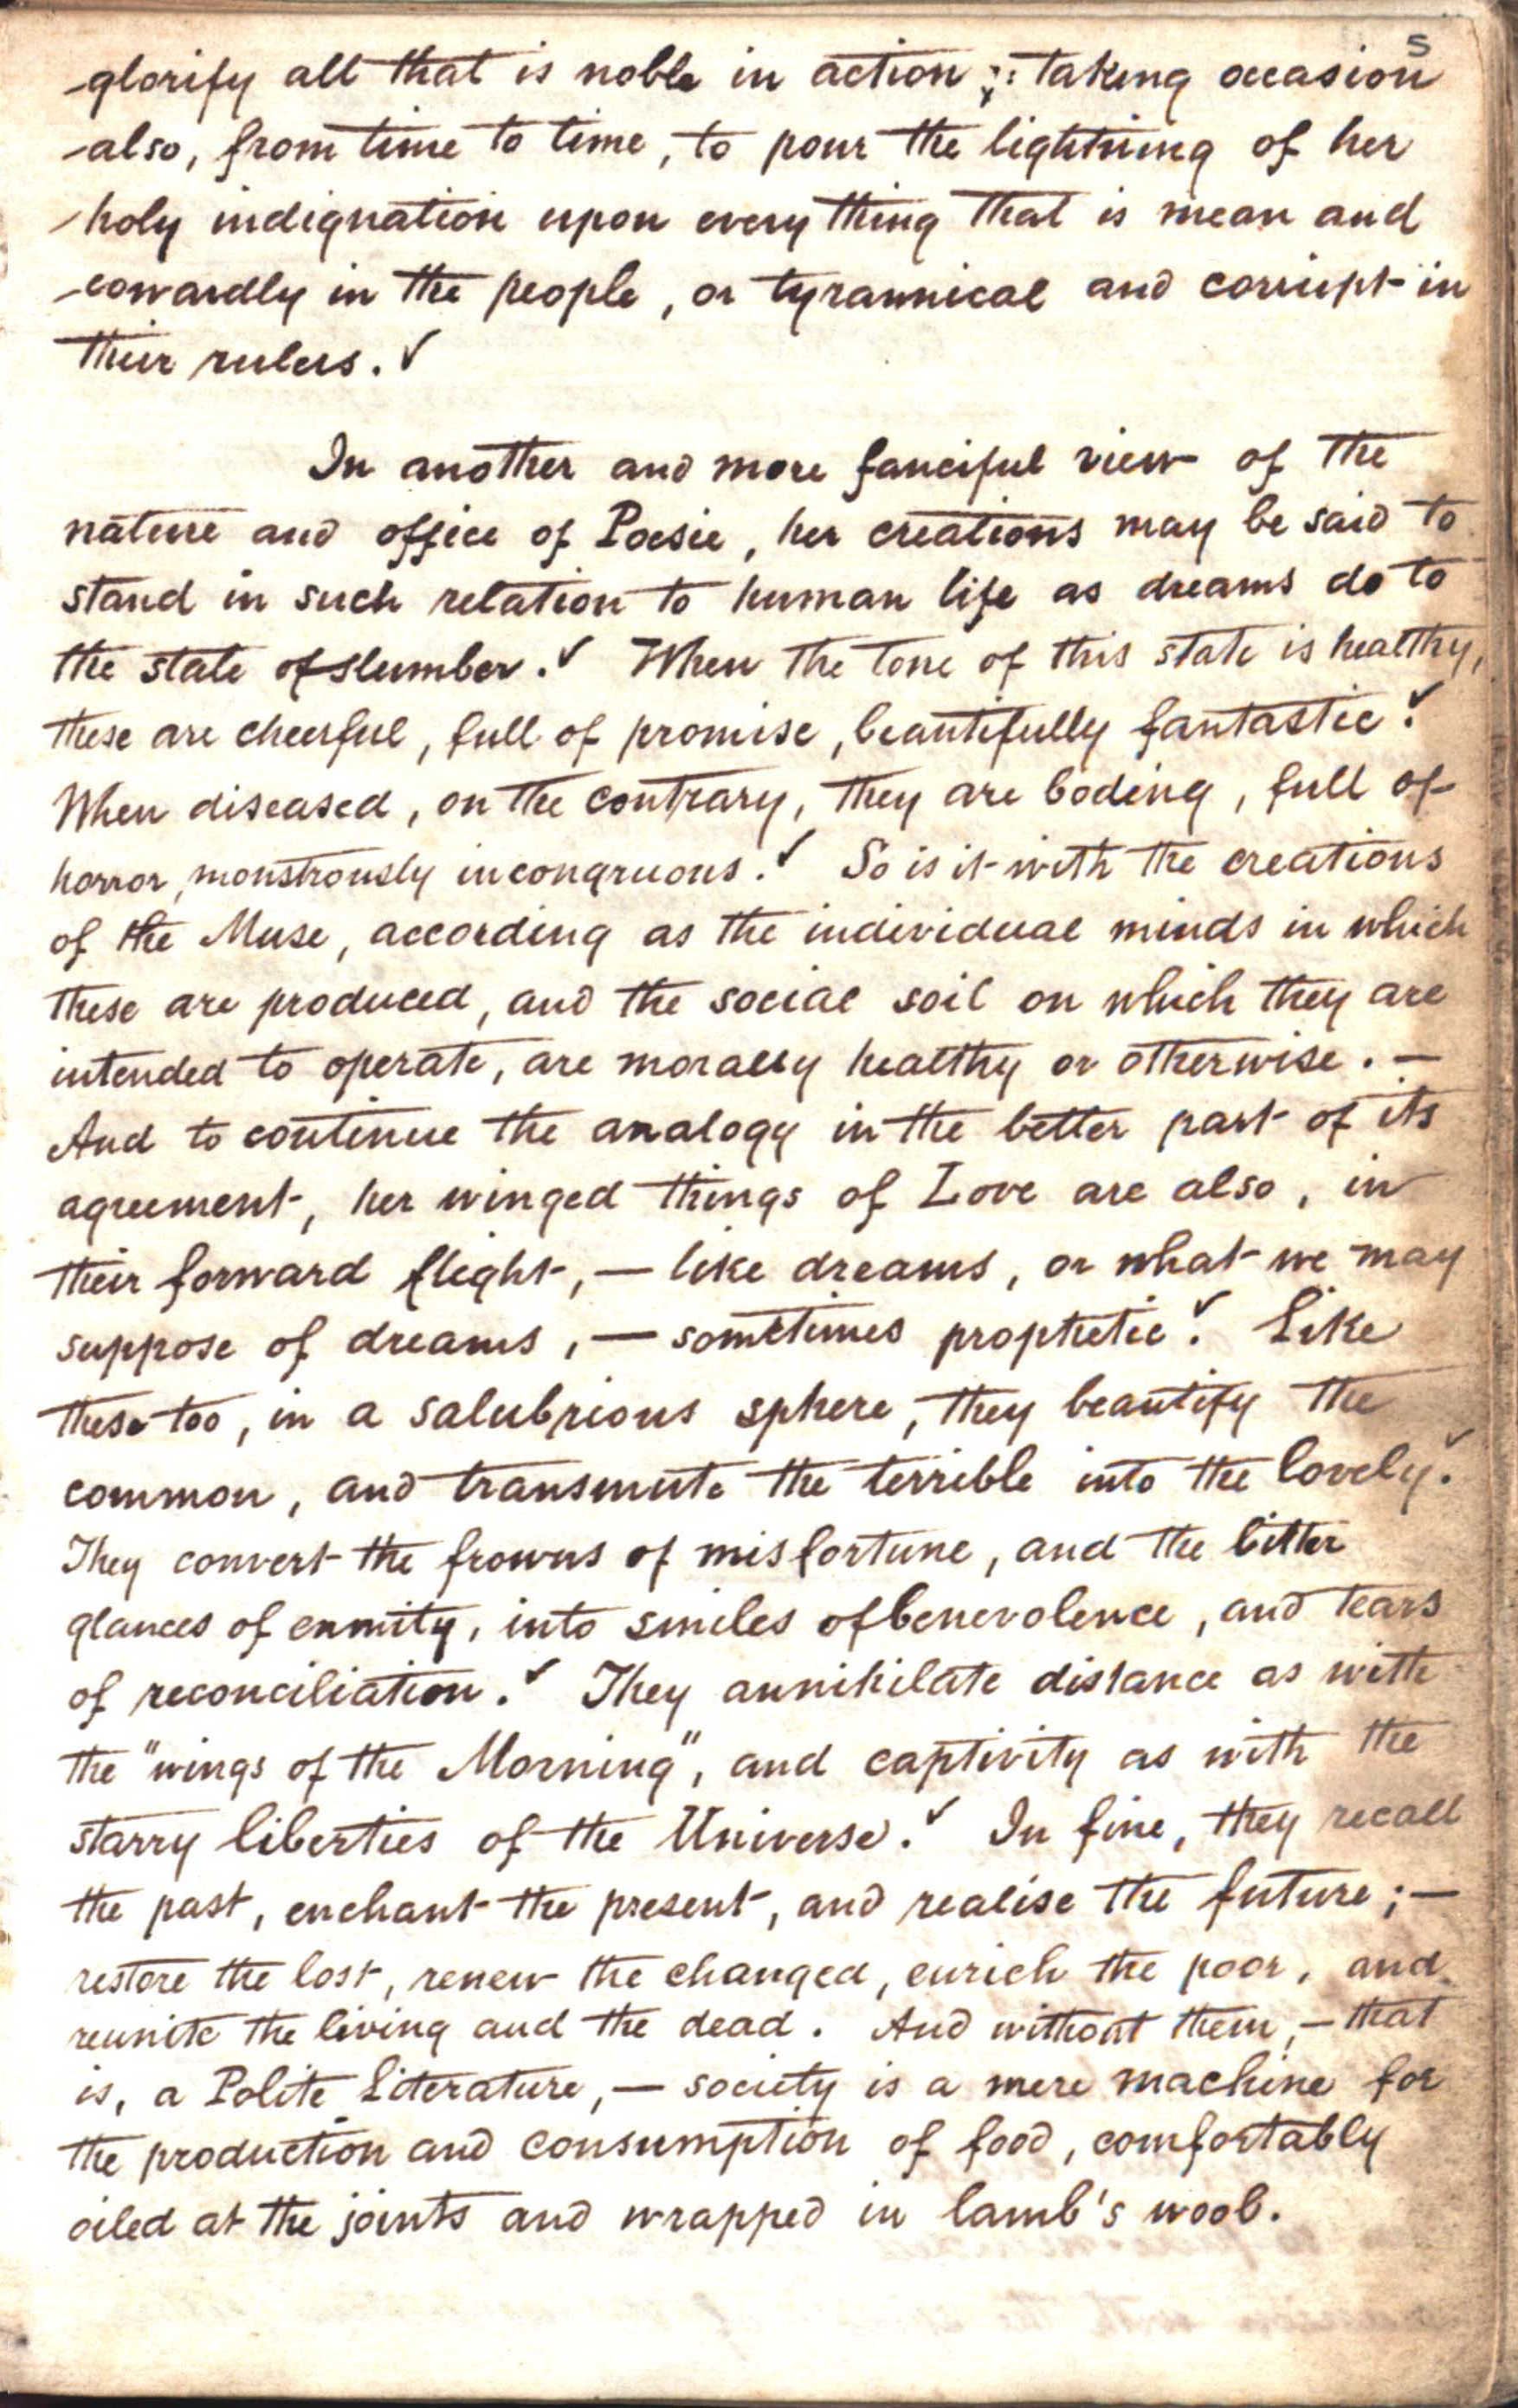 5
glorify all that is noble in action;: taking occasion
also, from time to time, to pour the lightning of her
holy indignation upon every thing that is mean and
cowardly in the people, or tyrannical and corrupt in
their rulers. ✓
In another and more fanciful view of the
nature and office of Poesie, her creations may be said to
stand in such relation to human life as dreams do to
the state of slumber. ✓ When the tone of this state is healthy,
these are cheerful, full of promise, beautifully fantastic. ✓
When diseased, on the contrary, they are boding, full of
horror, monstrously incongruous. ✓ So is it with the creations
of the Muse, according as the individual minds in which
these are produced, and the social soil on which they are
intended to operate, are morally healthy or otherwise. —
And to continue the analogy in the better part of its
agreement, her winged things of Love are also, in
their forward flight, — like dreams, or what we may
suppose of dreams, — sometimes prophetic. ✓ Like
these too, in a salubrious sphere, they beautify the
common, and transmute the terrible into the lovely. ✓
They convert the frowns of misfortune, and the bitter
glances of enmity, into smiles of benevolence, and tears
of reconciliation. ✓ They annihilate distance as with
the "wings of the Morning", and captivity as with the
starry liberties of the Universe. ✓ In fine, they recall
the past, enchant the present, and realise the future; —
restore the lost, renew the changed, enrich the poor, and
reunite the living and the dead. And without them, — that
is, a Polite Literature, — society is a mere machine for
the production and consumption of food, comfortably
oiled at the joints and wrapped in lamb's wool.